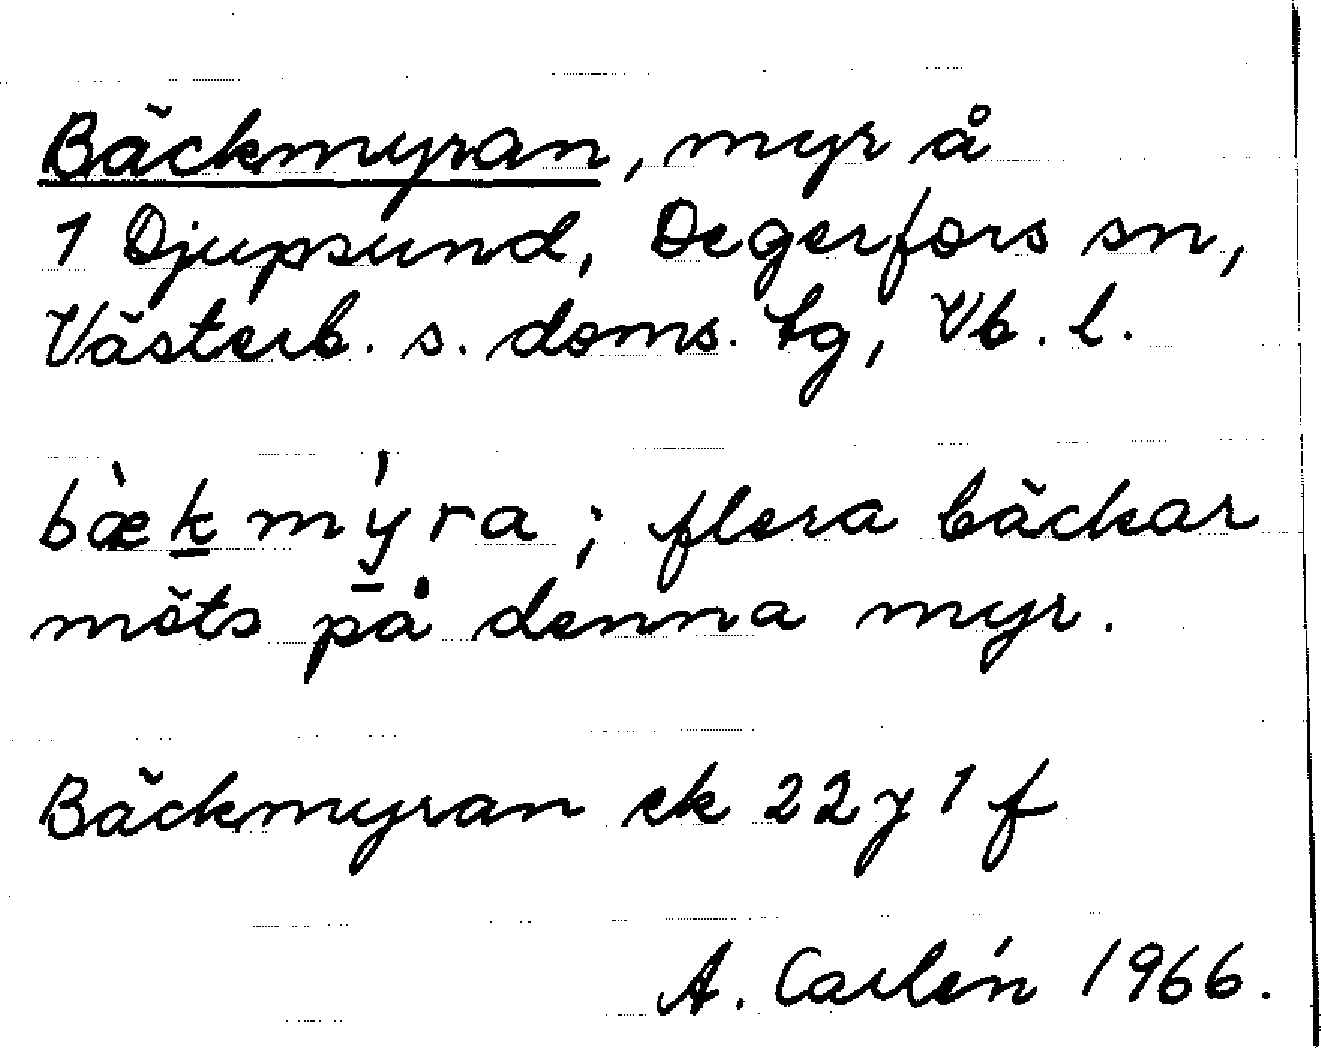 Bäckmyran, myr å
1 Djupsund, Degerfors sn,
Västerb. s. doms. tg, Vb. l.
bæ̀k̲ mý̲ra ; flera bäckar
möts på denna myr.
Bäckmyran ek 22 y 1 f
A. Carlén 1966.